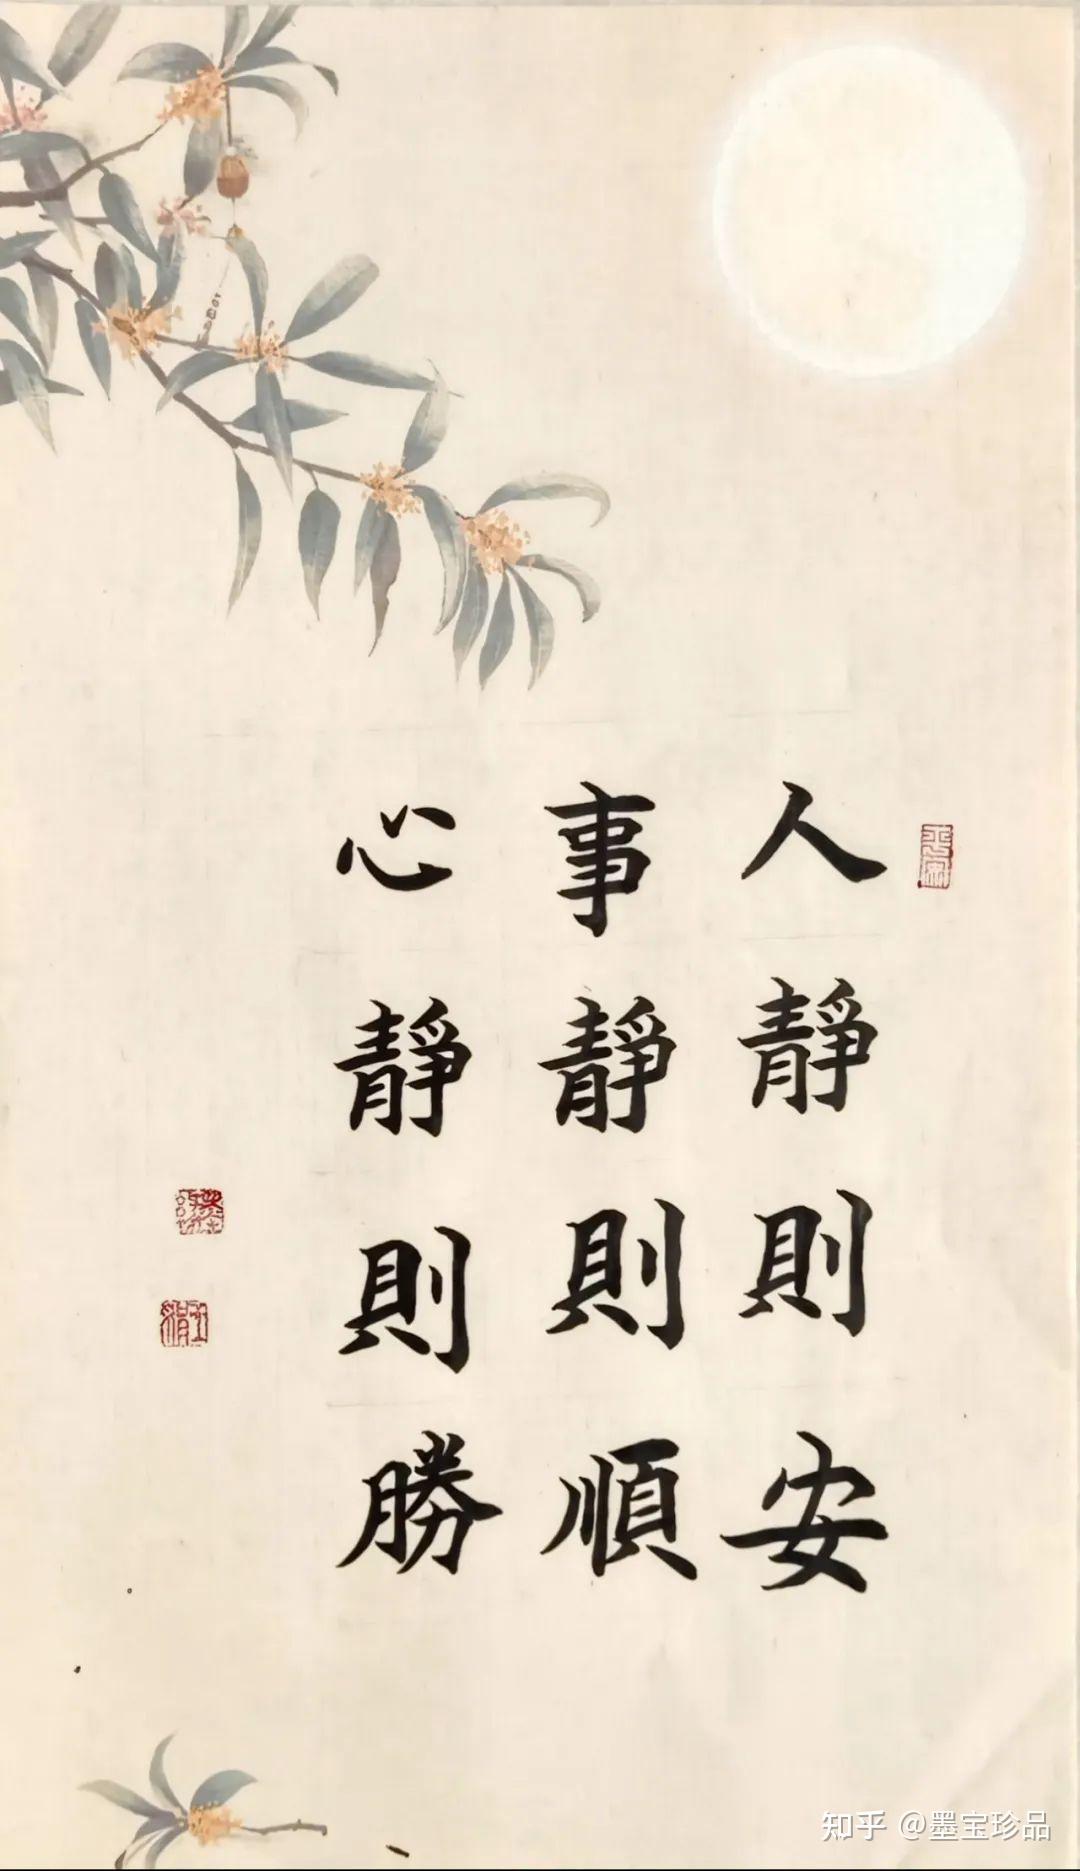 人靜則安
事靜則順
心靜則勝
知乎 @墨宝珍品